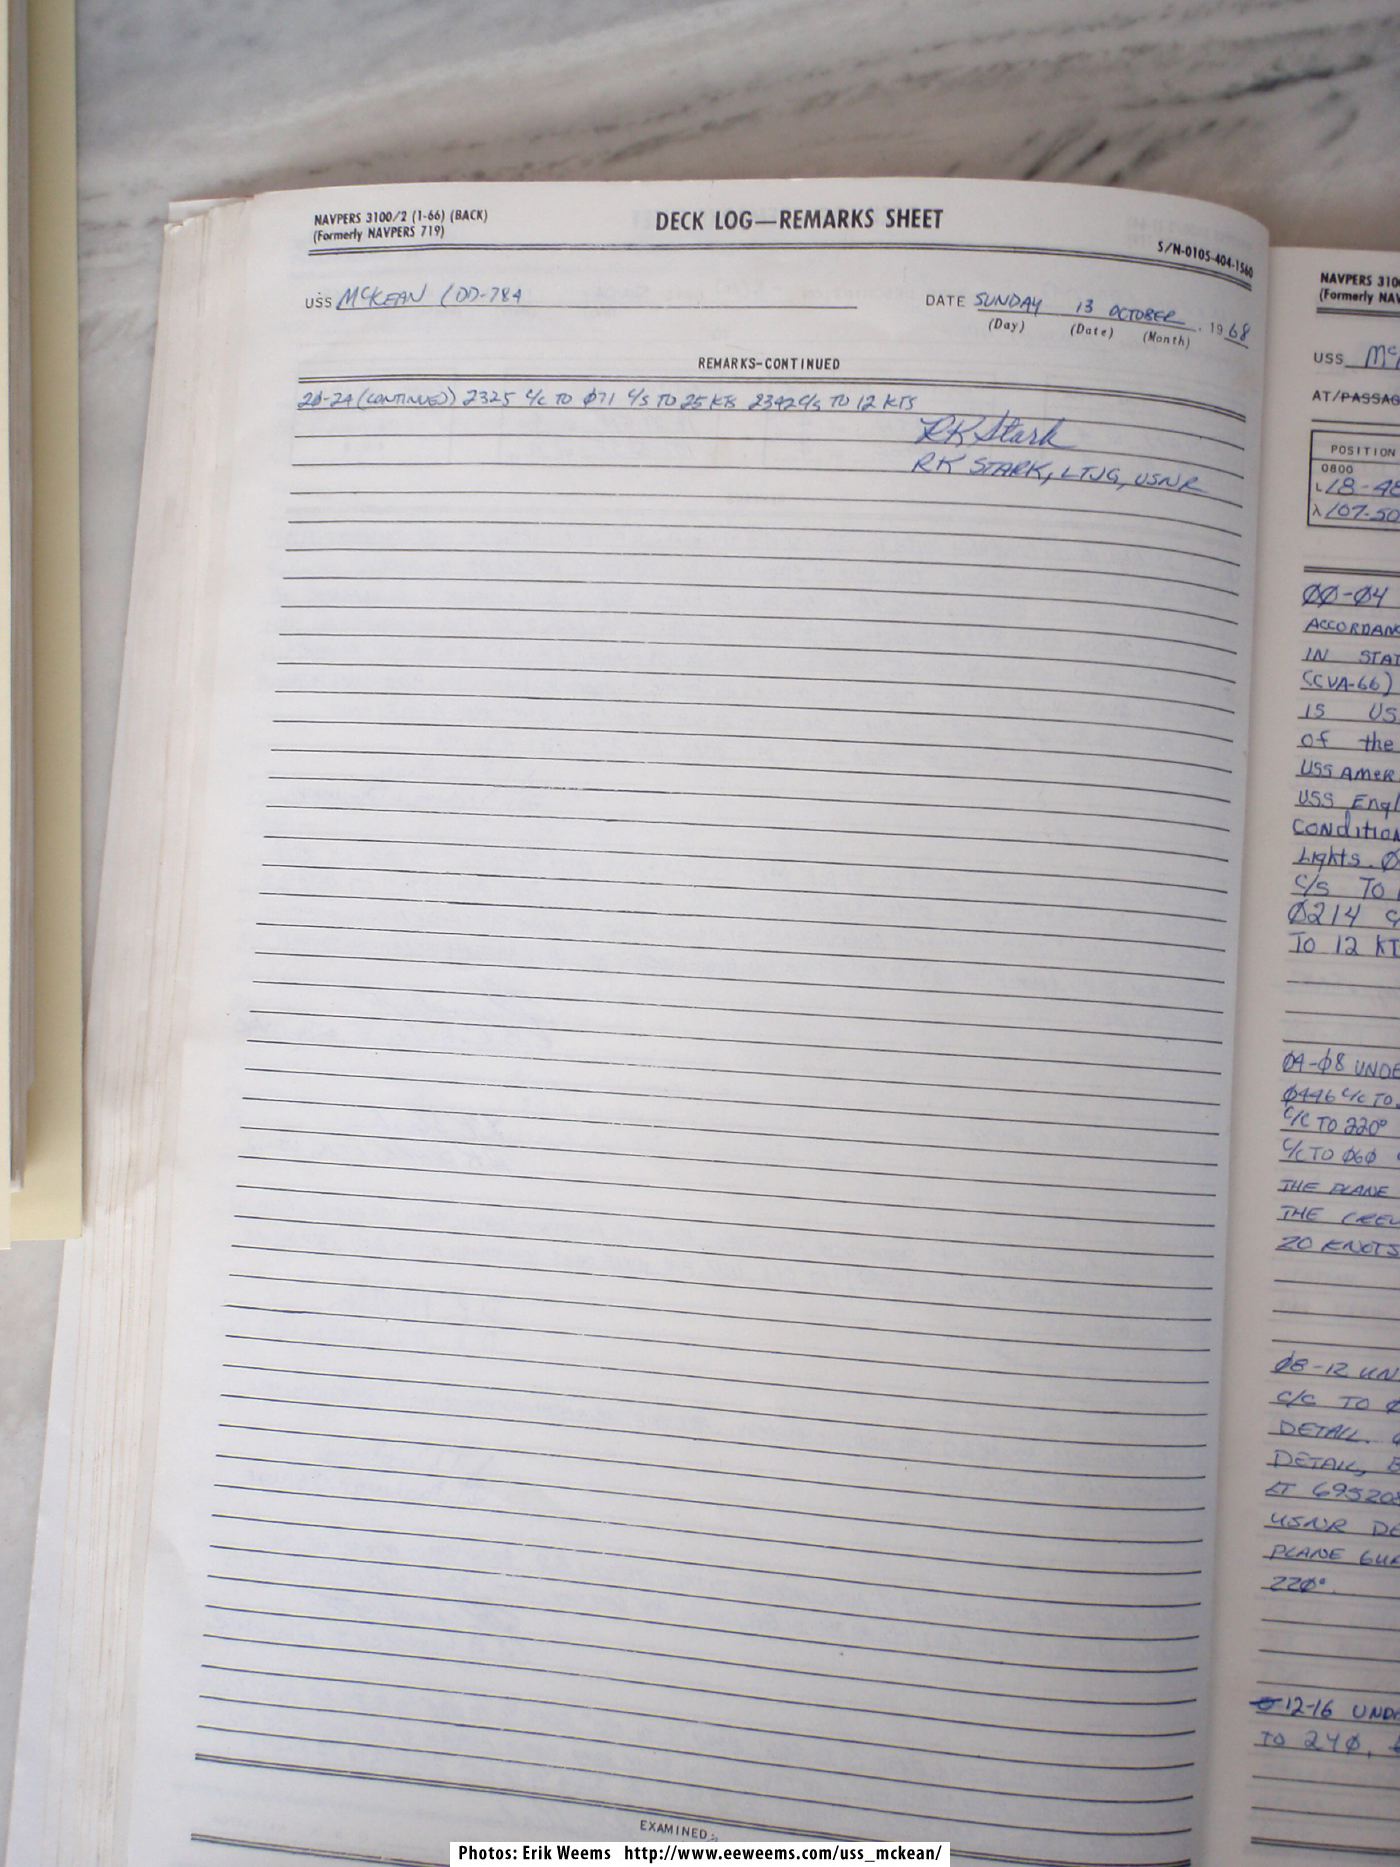 NAVPERS 3100/2 (1-66) (BACK)
(Formerly NAVPERS 719)
DECK LOG—REMARKS SHEET
S/N-0105-404-1560
USS McKEAN (DD-784
DATE SUNDAY 13 OCTOBER, 1968
(Day) (Date) (Month)
REMARKS-CONTINUED
20-24 (CONTINUED) 2325 C/C TO Ø71 C/S TO 25 KTS 2342 C/S TO 12 KTS
RK Stark
RK STARK, LTJG, USNR
EXAMINED:
NAVPERS 310
(Formerly NAV
USS Mc
AT/PASSAG
POSITION
0800
L 18-48
λ 107-50
ØØ-Ø4
ACCORDANC
IN STAT
(CVA-66)
IS US
of the
USS AMER
USS Engl
CONditION
Lights. Ø
C/S TO
Ø214 C
TO 12 KT
Ø4-Ø8 UNDE
Ø446 C/C TO
C/C TO 220°
C/C TO Ø6Ø
THE PLANE
THE CREW
20 KNOTS
Ø8-12 UN
C/C TO Ø
DETAIL.
DETAIL, B
LT 695208
USNR DE
PLANE GUA
22Ø°.
12-16 UNDE
TO 24Ø,
Photos: Erik Weems http://www.eeweems.com/uss_mckean/